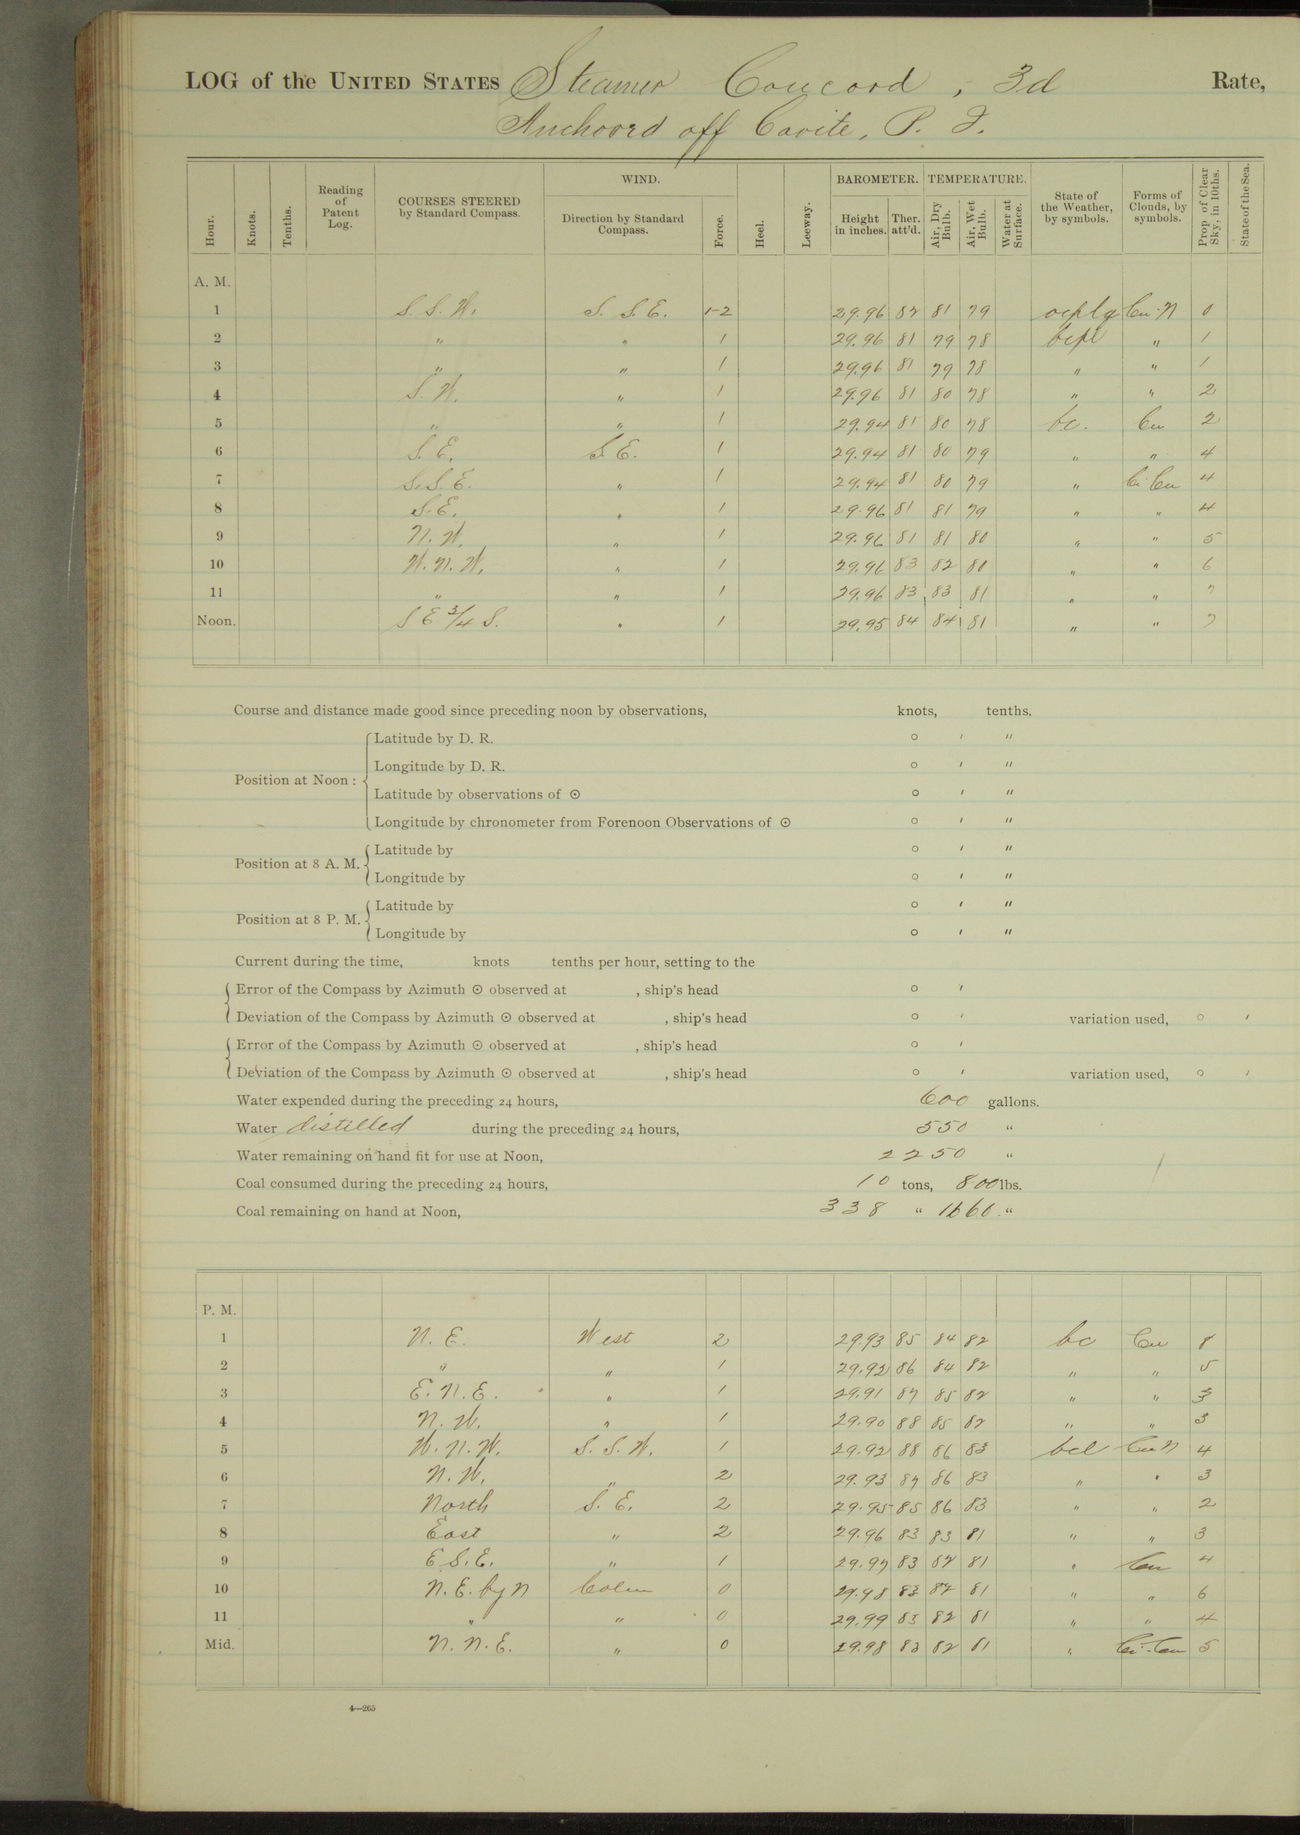 LOG of the UNITED STATES Steamer Concord, 3d Rate,
Anchoord off Cavite, P. I.
Hour. Knots. Tenths. Reading of Patent Log. COURSES STEERED by Standard Compass. WIND. Direction by Standard Compass. Force. Heel. Leeway. BAROMETER. Height in inches. Ther. att'd. TEMPERATURE. Air, Dry Bulb. Air, Wet Bulb. Water at Surface. State of the Weather, by symbols. Forms of Clouds, by symbols. Prop. of Clear Sky, in 10ths. State of the Sea.
A. M.
1 S. S. W. S. S. E. 1-2 29.96 82 81 79 ocplq Cu-N 0
2 " " 1 29.96 81 79 78 bcpl " 1
3 " " 1 29.96 81 79 78 " " 1
4 S. W. " 1 29.96 81 80 78 " " 2
5 " " 1 29.94 81 80 78 b.c. Cu 2
6 S. E. S. E. 1 29.94 81 80 79 " " 4
7 S. S. E. " 1 29.94 81 80 79 " Ci-Cu 4
8 S. E. " 1 29.96 81 81 79 " " 4
9 N. W. " 1 29.96 81 81 80 " " 5
10 W. N. W. " 1 29.96 83 82 80 " " 6
11 " " 1 29.96 83 83 81 " " 7
Noon. S E 3/4 S. " 1 29.95 84 84 81 " " 7
Course and distance made good since preceding noon by observations, knots, tenths.
Position at Noon: Latitude by D. R. ° ′ ″
Longitude by D. R. ° ′ ″
Latitude by observations of ☉ ° ′ ″
Longitude by chronometer from Forenoon Observations of ☉ ° ′ ″
Position at 8 A. M. Latitude by ° ′ ″
Longitude by ° ′ ″
Position at 8 P. M. Latitude by ° ′ ″
Longitude by ° ′ ″
Current during the time, knots tenths per hour, setting to the
Error of the Compass by Azimuth ☉ observed at , ship's head ° ′
Deviation of the Compass by Azimuth ☉ observed at , ship's head ° ′ variation used, ° ′
Error of the Compass by Azimuth ☉ observed at , ship's head ° ′
Deviation of the Compass by Azimuth ☉ observed at , ship's head ° ′ variation used, ° ′
Water expended during the preceding 24 hours, 600 gallons.
Water distilled during the preceding 24 hours, 550 "
Water remaining on hand fit for use at Noon, 2250 "
Coal consumed during the preceding 24 hours, 10 tons, 800 lbs.
Coal remaining on hand at Noon, 338 " 1660 "
P. M.
1 N. E. West 2 29.93 85 84 82 bc Cu 8
2 " " 1 29.92 86 84 82 " " 5
3 E. N. E. " 1 29.91 87 85 82 " " 3
4 N. W. " 1 29.90 88 85 82 " " 3
5 W. N. W. S. S. W. 1 29.92 88 86 83 bcl Cu-N 4
6 N. W. " 2 29.93 87 86 83 " " 3
7 North S. E. 2 29.95 85 86 83 " " 2
8 East " 2 29.96 83 83 81 " " 3
9 E S. E. " 1 29.97 83 82 81 " Cu 4
10 N. E. by N Calm 0 29.98 83 82 81 " " 6
11 " " 0 29.99 83 82 81 " " 4
Mid. N. N. E. " 0 29.98 83 82 81 " Ci-Cu 5
4—265